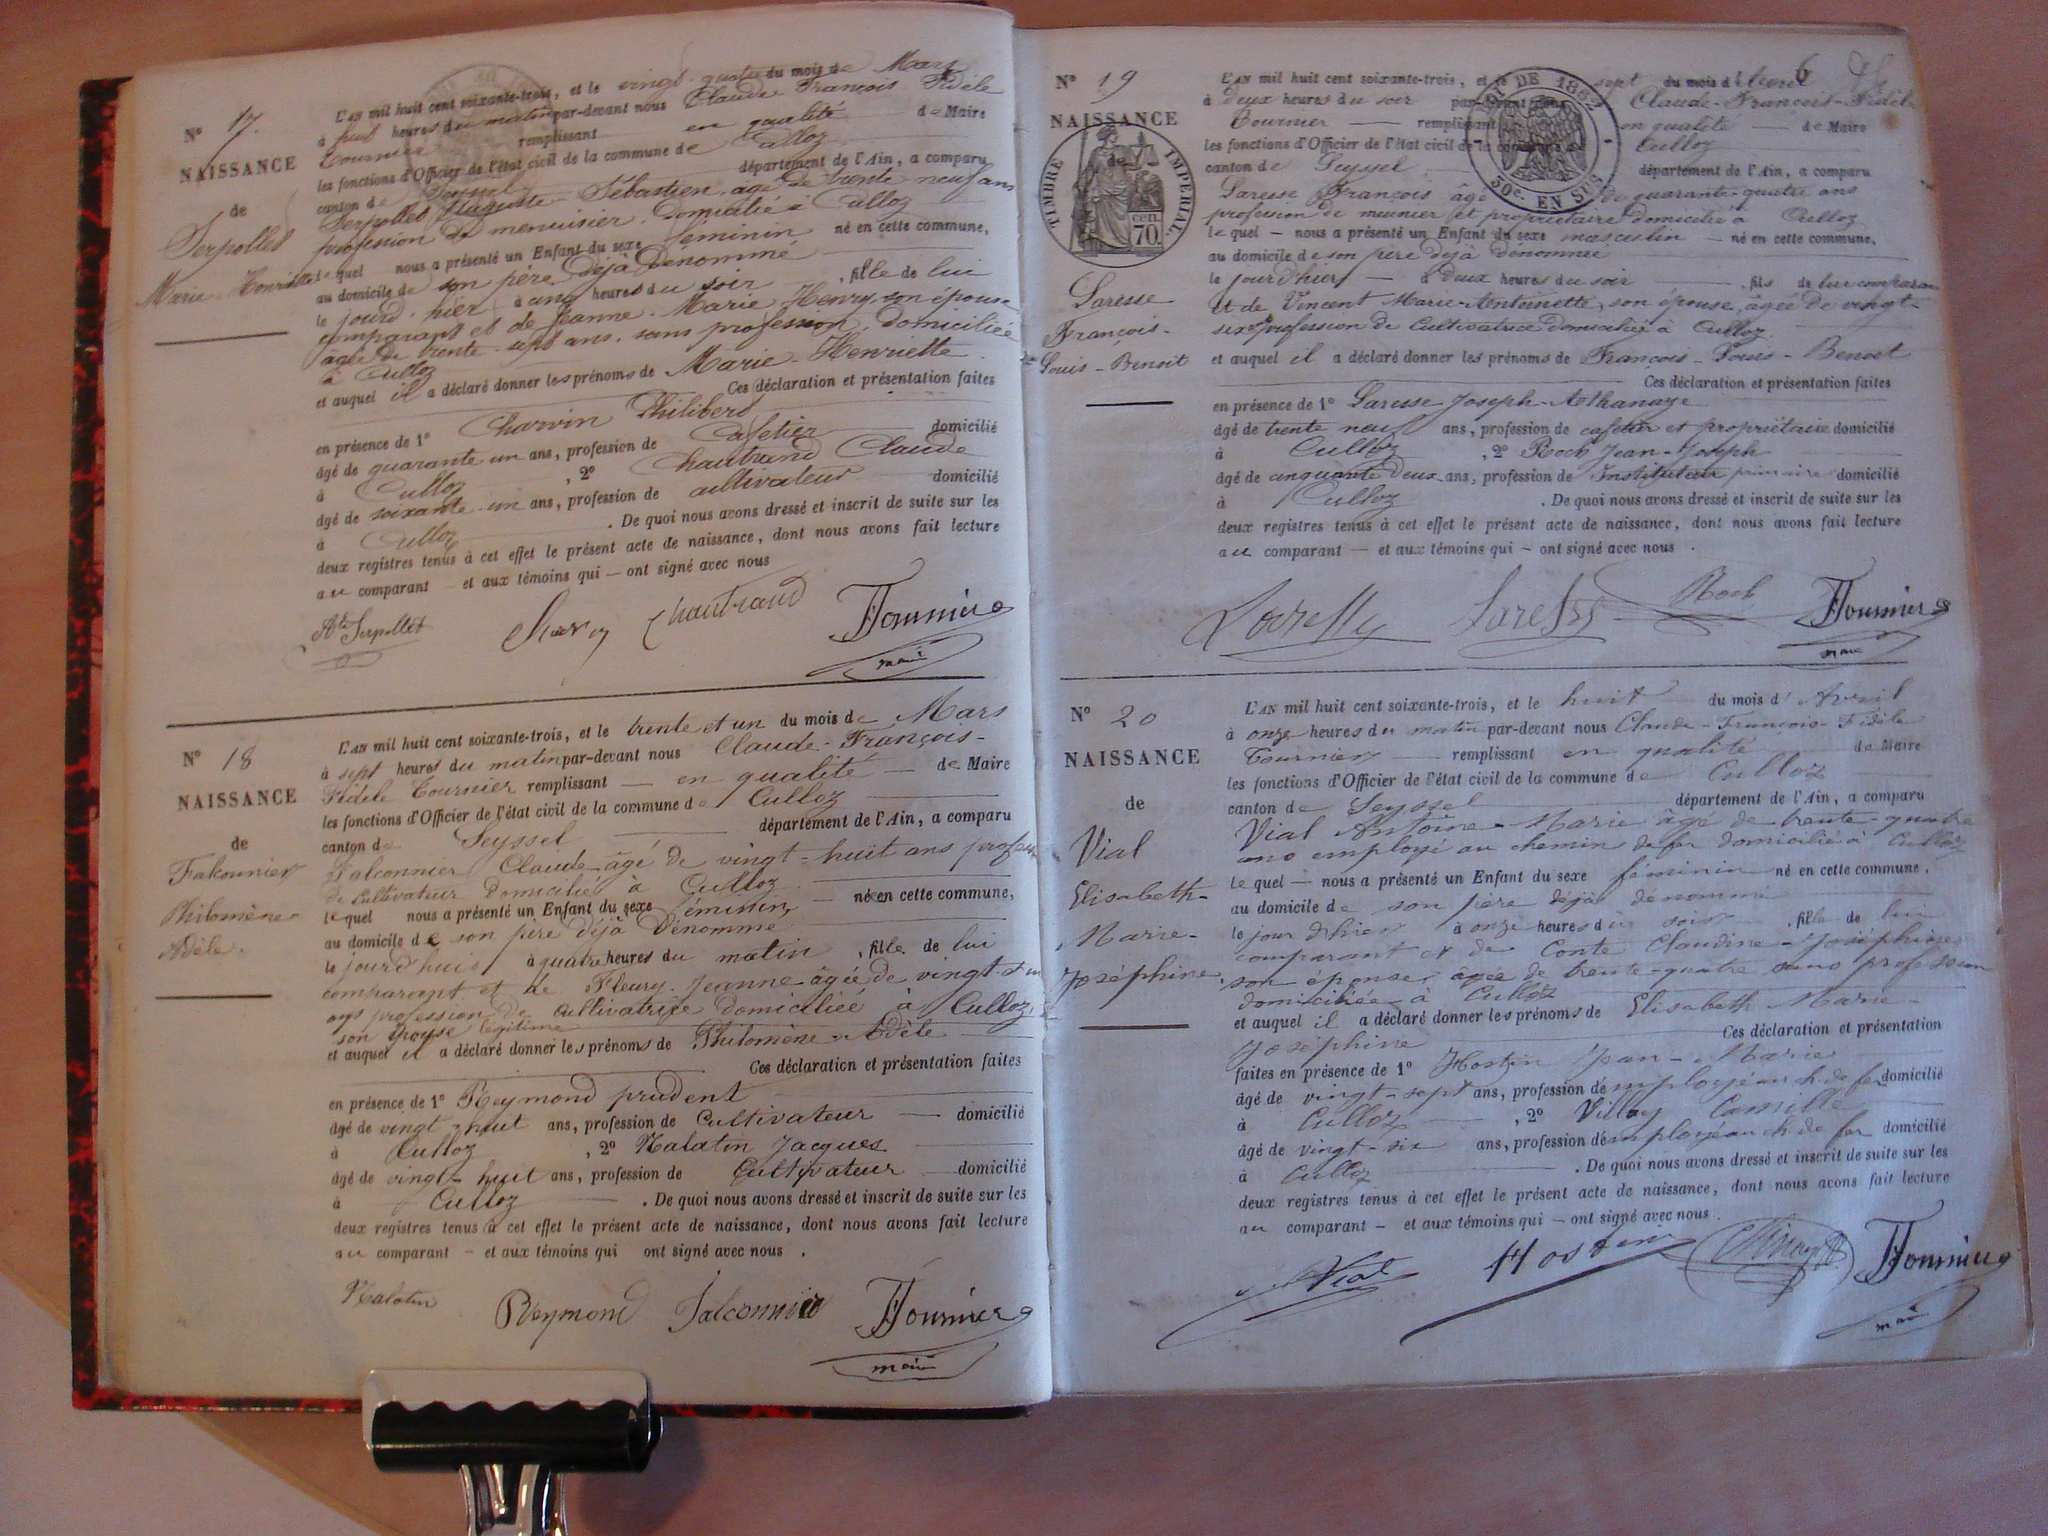 N° 17.
NAISSANCE
de
Serpollet
Marie-Henriette
L'AN mil huit cent soixante-trois, et le vingt-quatre du mois de Mars
à huit heures du matin par-devant nous Claude François Fidèle
Tournier remplissant en qualité de Maire
les fonctions d'Officier de l'état civil de la commune de Culloz
canton de Seyssel département de l'Ain, a comparu
Serpollet Auguste-Sébastien âgé de trente neuf ans
profession de menuisier, domicilié à Culloz
lequel nous a présenté un Enfant du sexe féminin né en cette commune,
au domicile de son père déjà dénommé
le jour d'hier à cinq heures du soir, fille de lui
comparant et de Jeanne-Marie Henry son épouse
âgée de trente-sept ans, sans profession, domiciliée
à Culloz
et auquel il a déclaré donner les prénoms de Marie-Henriette
Ces déclaration et présentation faites
en présence de 1° Charvin Philibert
âgé de quarante un ans, profession de Cafetier domicilié
à Culloz, 2° Chautrand Claude
âgé de soixante-un ans, profession de cultivateur domicilié
à Culloz. De quoi nous avons dressé et inscrit de suite sur les
deux registres tenus à cet effet le présent acte de naissance, dont nous avons fait lecture
au comparant — et aux témoins qui — ont signé avec nous
Ate Serpollet Chautrand Tournier
maire
N° 18
NAISSANCE
de
Falconnier
Philomène
Adèle.
L'AN mil huit cent soixante-trois, et le trente et un du mois de Mars
à sept heures du matin par-devant nous Claude-François-
Fidèle Tournier remplissant — en qualité — de Maire
les fonctions d'Officier de l'état civil de la commune de Culloz
canton de Seyssel département de l'Ain, a comparu
Falconnier Claude âgé de vingt-huit ans profession
de cultivateur domicilié à Culloz
lequel nous a présenté un Enfant du sexe féminin — né en cette commune,
au domicile de son père déjà dénommé
le jourd'hui à quatre heures du matin, fille de lui
comparant et de Fleury Jeanne âgée de vingt-
ans profession de cultivatrice domiciliée à Culloz,
son épouse légitime
et auquel il a déclaré donner les prénoms de Philomène-Adèle
Ces déclaration et présentation faites
en présence de 1° Reymond prudent
âgé de vingt-huit ans, profession de Cultivateur — domicilié
à Culloz, 2° Nalatin Jacques
âgé de vingt-huit ans, profession de Cultivateur — domicilié
à Culloz. De quoi nous avons dressé et inscrit de suite sur les
deux registres tenus à cet effet le présent acte de naissance, dont nous avons fait lecture
au comparant — et aux témoins qui ont signé avec nous.
Nalatin Reymond Falconnier Tournier
maire
6
N° 19
NAISSANCE
de
TIMBRE IMPERIAL
cen.
70.
Laresse
François-
Louis-Benoit
DE 1862
30c. EN SUS
L'AN mil huit cent soixante-trois, et le sept du mois d'Avril
à deux heures du soir par-devant nous Claude-François-Fidèle
Tournier — remplissant en qualité — de Maire
les fonctions d'Officier de l'état civil de la commune de Culloz
canton de Seyssel département de l'Ain, a comparu
Laresse François âgé de quarante-quatre ans
profession de meunier et propriétaire domicilié à Culloz
lequel — nous a présenté un Enfant du sexe masculin — né en cette commune,
au domicile de son père déjà dénommé
le jour d'hier — à deux heures du soir —, fils de lui comparant
et de Vincent Marie-Antoinette, son épouse, âgée de vingt-
six ans profession de Cultivatrice domiciliée à Culloz
et auquel il a déclaré donner les prénoms de François-Louis-Benoit
Ces déclaration et présentation faites
en présence de 1° Laresse Joseph-Athanaze
âgé de trente neuf ans, profession de cafetier et propriétaire domicilié
à Culloz, 2° Roch Jean-Joseph
âgé de cinquante deux ans, profession de Instituteur primaire domicilié
à Culloz. De quoi nous avons dressé et inscrit de suite sur les
deux registres tenus à cet effet le présent acte de naissance, dont nous avons fait lecture
au comparant — et aux témoins qui — ont signé avec nous.
Roch Tournier
maire
N° 20
NAISSANCE
de
Vial
Elisabeth-
Marie-
Joséphine.
L'AN mil huit cent soixante-trois, et le huit du mois d'Avril
à onze heures du matin par-devant nous Claude-François-Fidèle
Tournier — remplissant en qualité de Maire
les fonctions d'Officier de l'état civil de la commune de Culloz
canton de Seyssel département de l'Ain, a comparu
Vial Antoine-Marie âgé de trente-quatre
ans employé au chemin de fer domicilié à Culloz
lequel — nous a présenté un Enfant du sexe féminin né en cette commune,
au domicile de son père déjà dénommé
le jour d'hier à onze heures du soir, fille de lui
comparant et de Conte Claudine-Joséphine
son épouse âgée de trente-quatre sans profession
domiciliée à Culloz
et auquel il a déclaré donner les prénoms de Elisabeth Marie-
Joséphine Ces déclaration et présentation
faites en présence de 1° Hostin Jean-Marie
âgé de vingt-sept ans, profession d'employé au ch. de fer domicilié
à Culloz, 2° Villay Camille
âgé de vingt-six ans, profession d'employé au ch. de fer domicilié
à Culloz. De quoi nous avons dressé et inscrit de suite sur les
deux registres tenus à cet effet le présent acte de naissance, dont nous avons fait lecture
au comparant — et aux témoins qui — ont signé avec nous.
Vial Hostin Tournier
maire